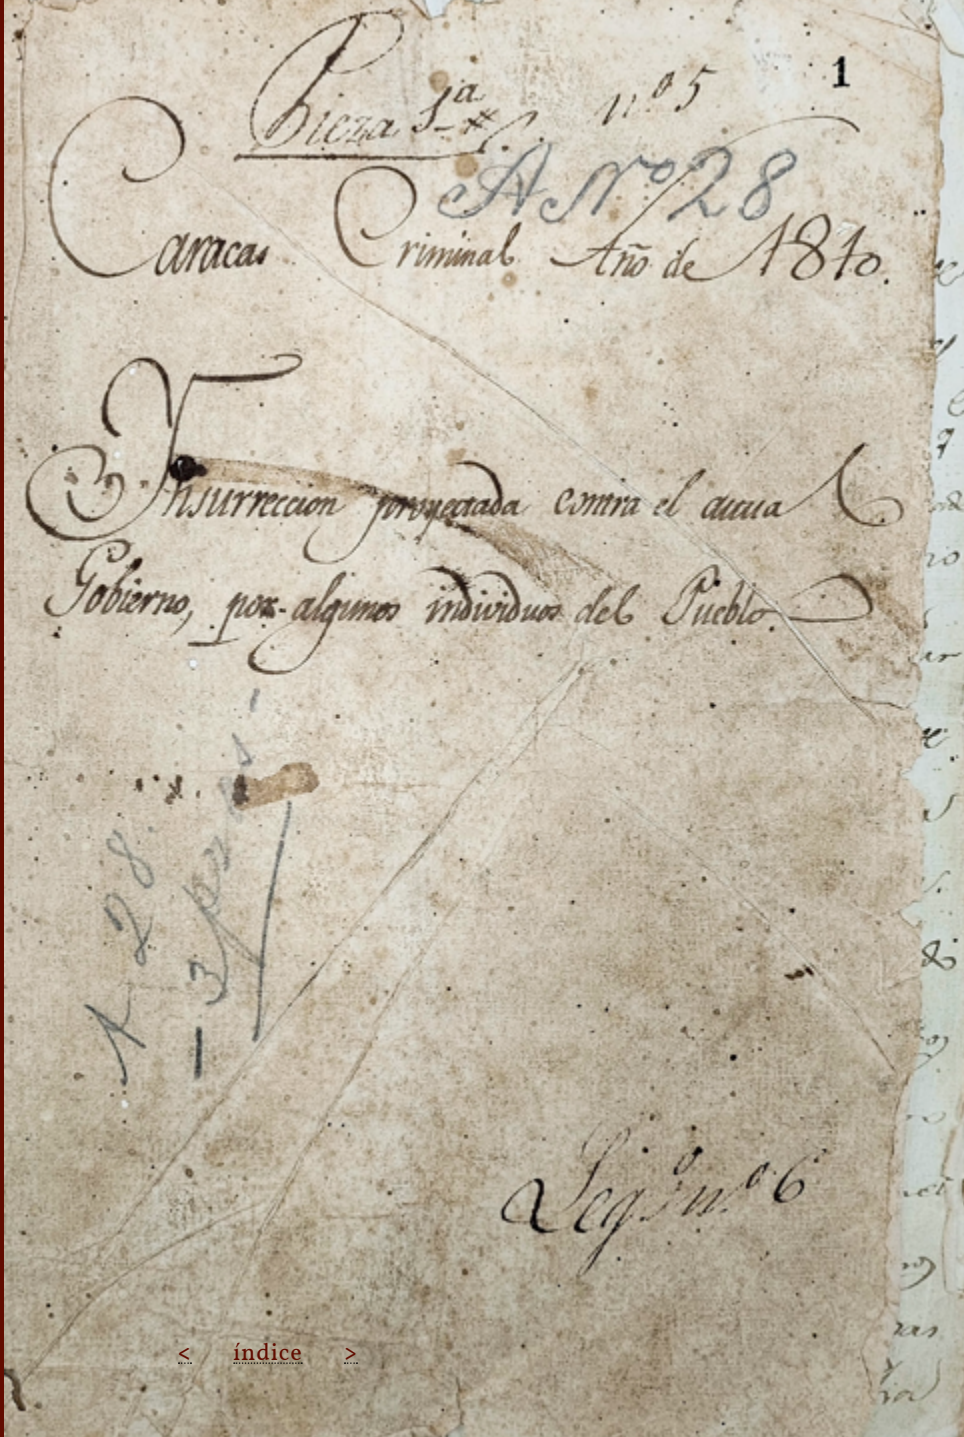 1
Pieza 1ª nº 5
A Nº 28
Caracas Criminal Año de 1810.
Insurreccion proyectada contra el actual
Gobierno, por algunos individuos del Pueblo.
A 28
3
Legº nº 6
< índice >